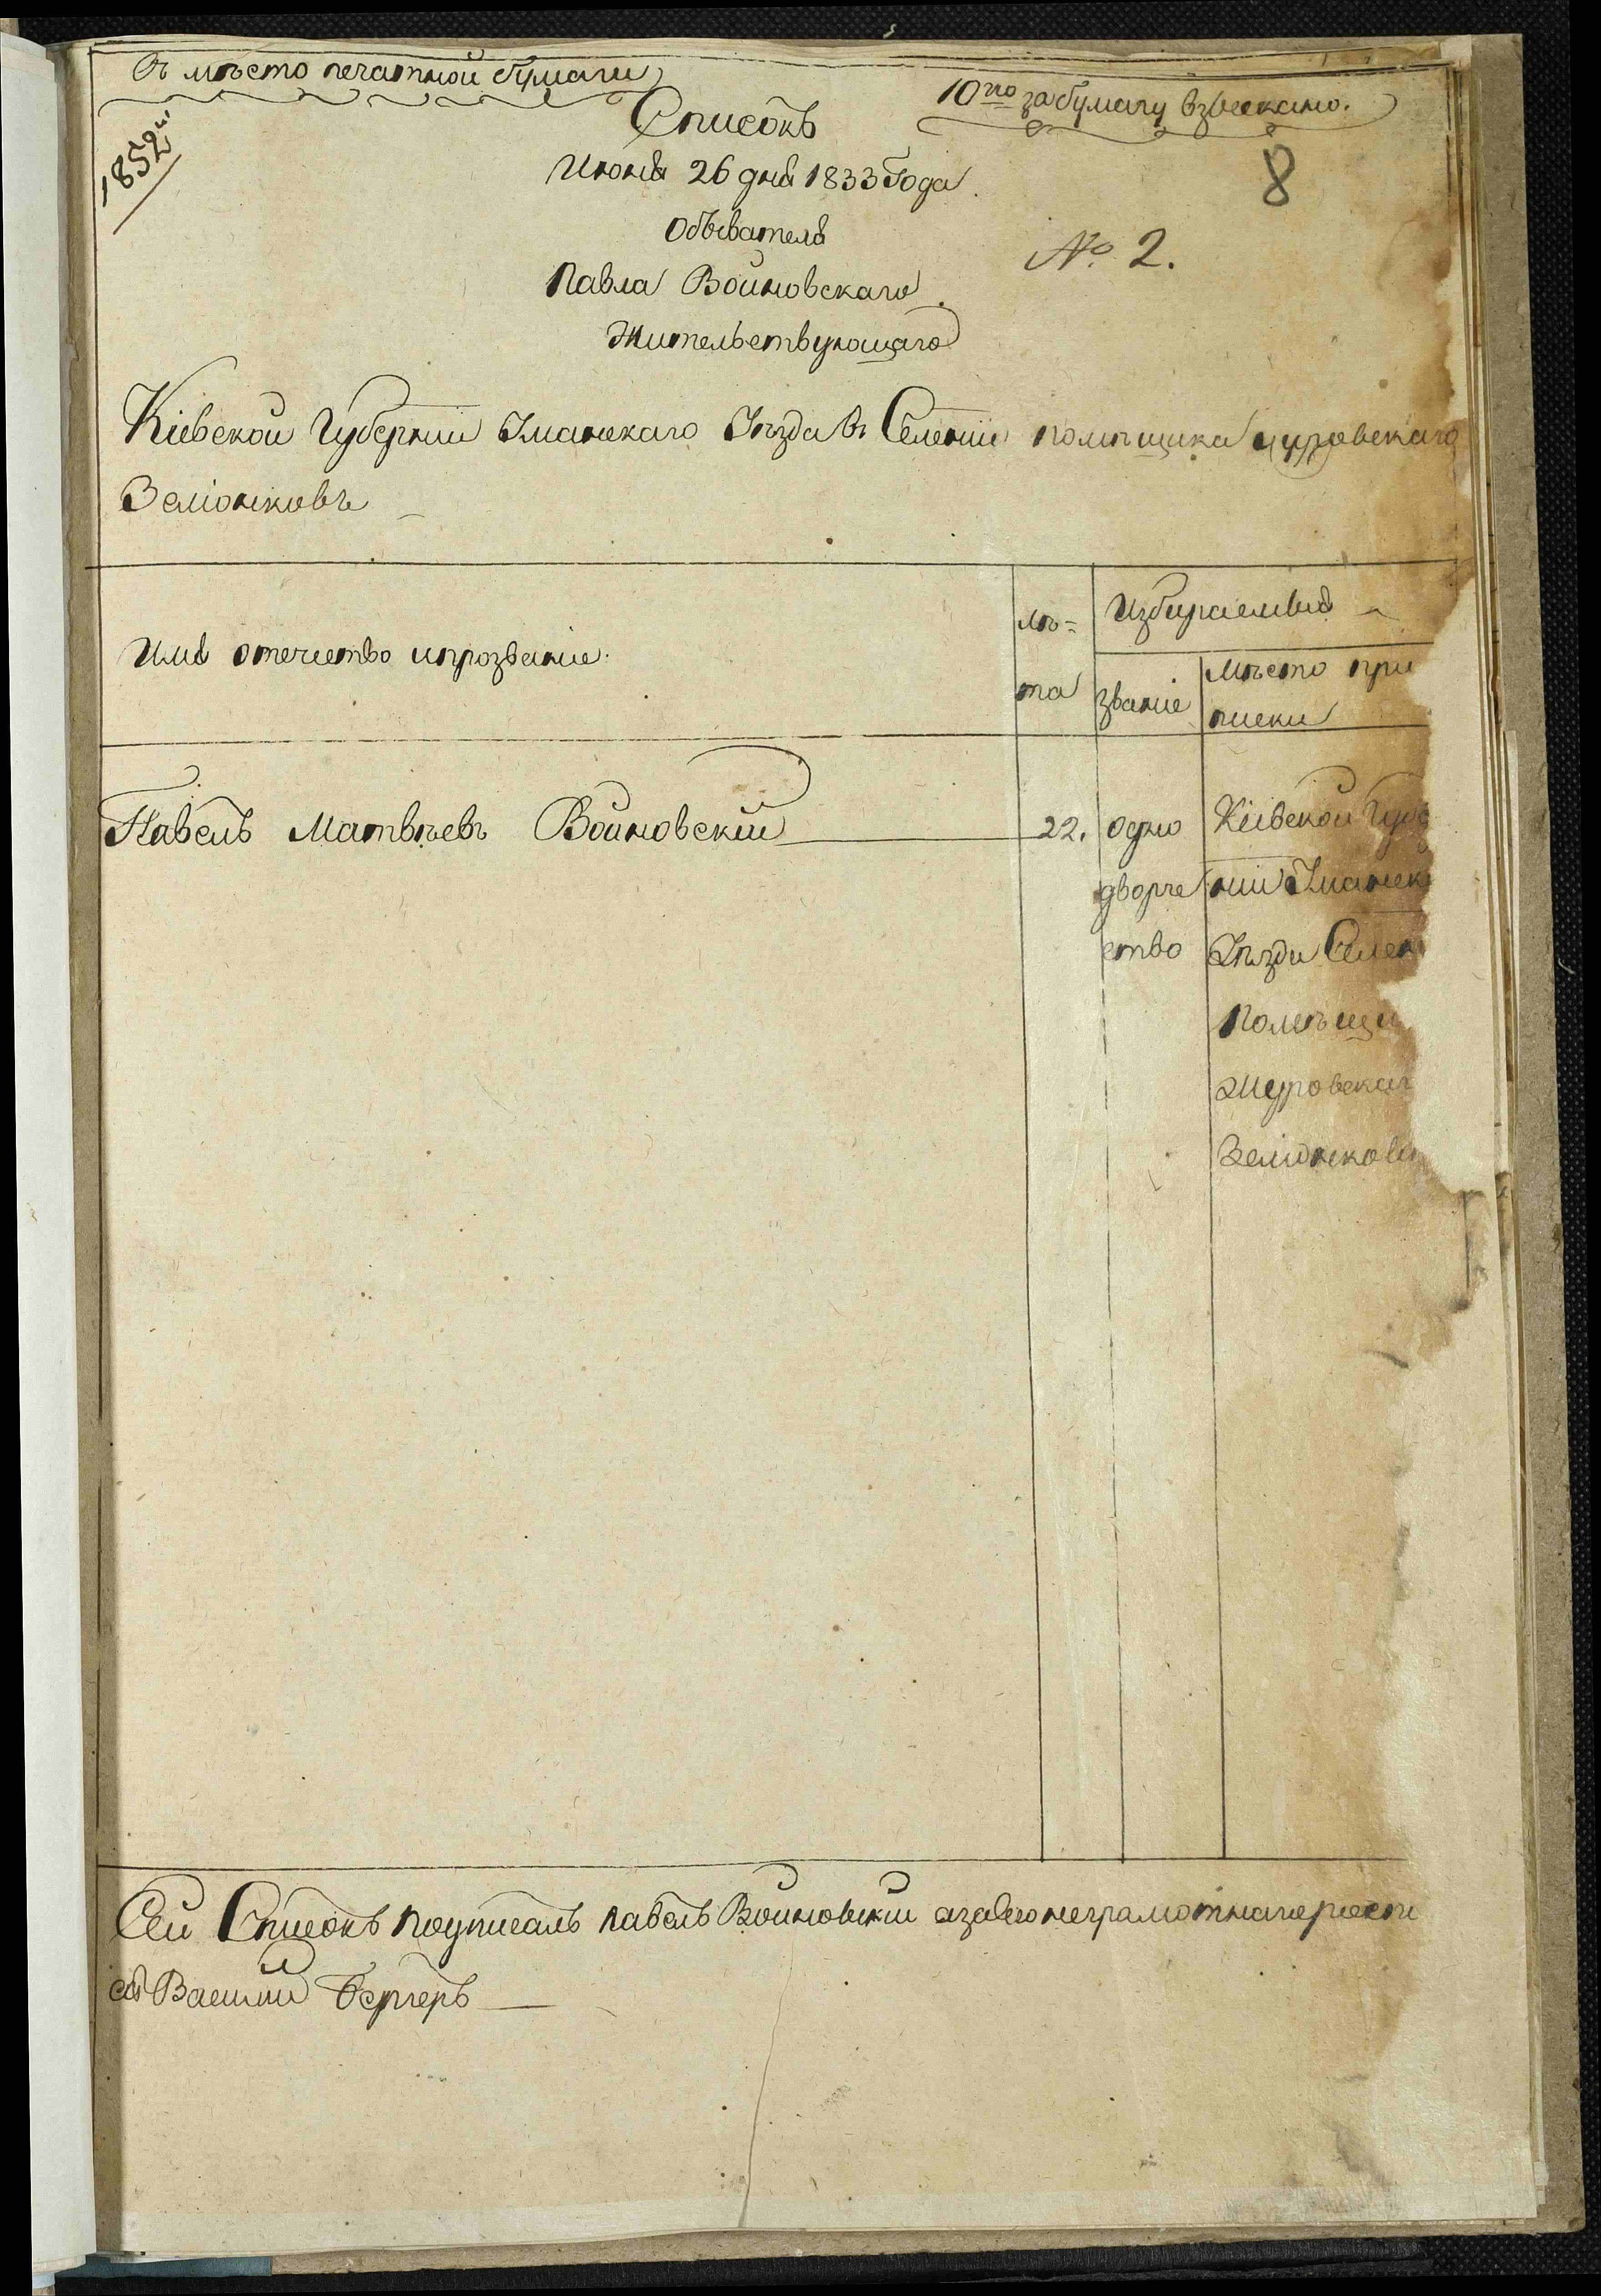 Въ мѣсто печатной бумаги
10 ко за бумагу взыскано.
1852й
Списокъ
Июня 26 дня 1833 Года
8
Обывателя
№ 2.
Павла Войновскаго
Жительствующаго
Кіевской Губерніи Уманскаго Уѣзда въ Селеніи помѣщика
Зеліонковѣ
Имя отечество ипрозваніе
лѣ=
та
Избираемыя
званіе
мѣсто при
писки
Павелъ Матвѣевъ Войновскій
22.
одно
дворче
ство
Кіевской Губе
ніи Уманск
Уѣзди Селен
Помѣщи
Журовскаг
Зеліонковѣ
Сей Списокъ подписалъ павелъ Войновскій азаего неграмотнаго
Василій